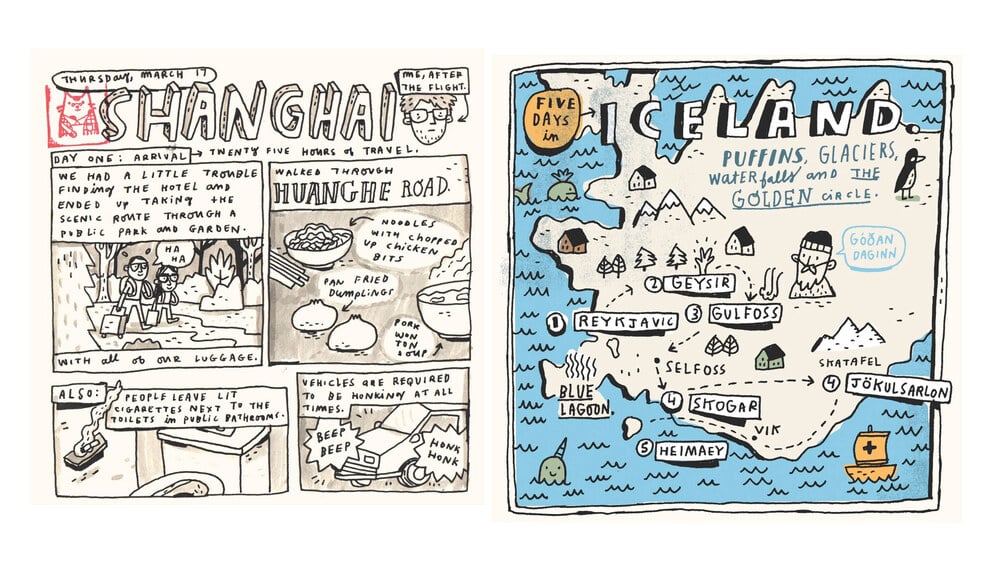 THURSDAY, MARCH 17
SHANGHAI
ME, AFTER
THE FLIGHT.
DAY ONE: ARRIVAL → TWENTY FIVE HOURS of TRAVEL.
WE HAD A LITTLE TROUBLE
FINDING THE HOTEL AND
ENDED UP TAKING THE
SCENIC ROUTE THROUGH A
PUBLIC PARK AND GARDEN.
HA
HA
WITH all of OUR LUGGAGE.
WALKED THROUGH
HUANGHE ROAD.
NOODLES
WITH CHOPPED
UP CHICKEN
BITS
PAN FRIED
DUMPLINGS
PORK
WON
TON
SOUP
ALSO:
PEOPLE LEAVE LIT
CIGARETTES NEXT TO THE
TOILETS in PUBLIC BATHROOMS.
VEHICLES ARE REQUIRED
TO BE HONKING AT ALL
TIMES.
BEEP
BEEP
HONK
HONK
FIVE
DAYS
in
ICELAND.
PUFFINS, GLACIERS,
waterfalls and THE
GOLDEN CIRCLE.
GÓÐAN
DAGINN
2 GEYSIR
1 REYKJAVIC
3 GULFOSS
SELFOSS
SKATAFEL
BLUE
LAGOON.
4 JÖKULSARLON
4 SKOGAR
VIK
5 HEIMAEY